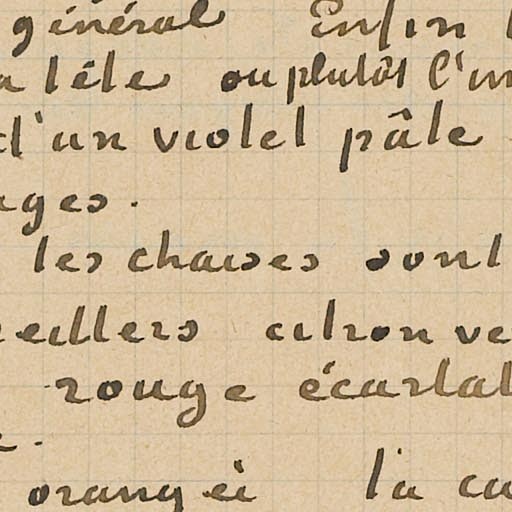 général Enfin
la tête ou plutôt l'im
d'un violet pâle
ages.
les chaises sont
reillers citron ve
rouge écarlat
e.
orangée la cu